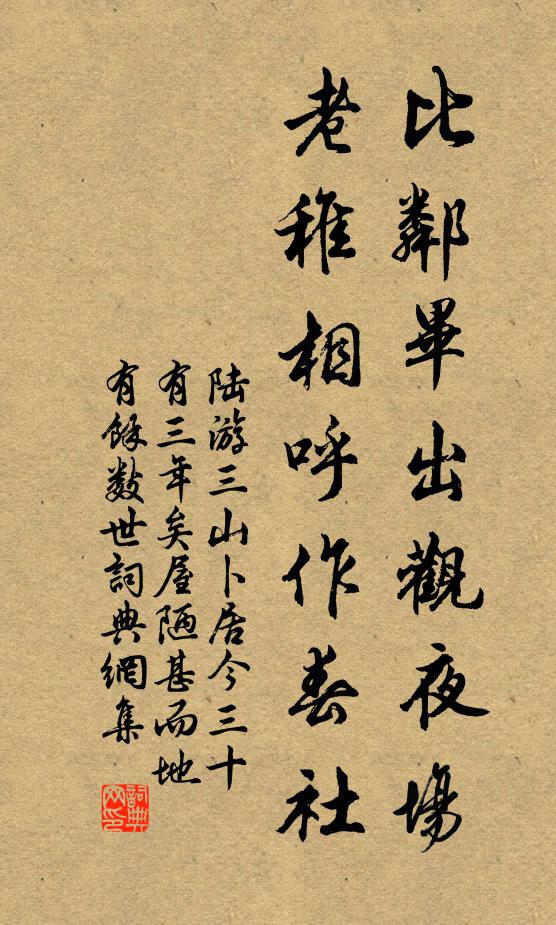 比鄰畢出觀夜場
老稚相呼作春社
陆游三山卜居今三十
有三年矣屋陋甚而地
有餘数世詞典網集
詞典网印